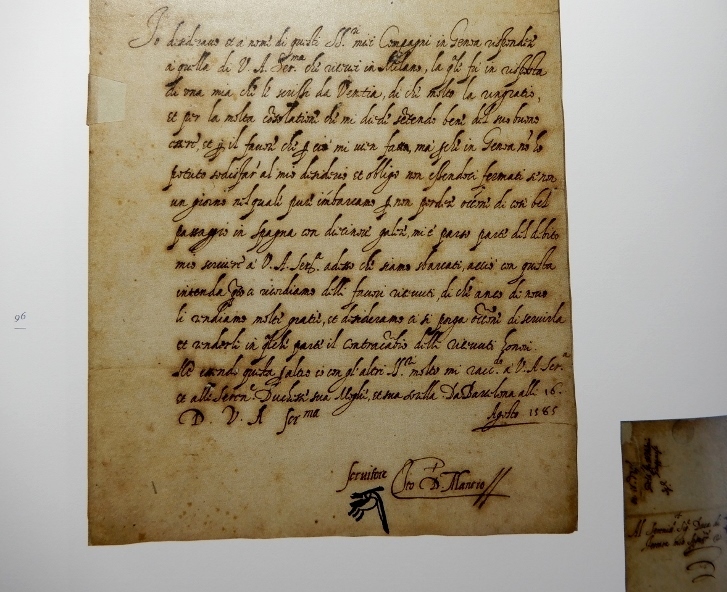 Io desideravo et a nome di questi SS.ri miei Compagni in Genoa risponder
a quella di V. A. Ser.ma che ricevei in Milano, la qle fu in risposta
di una mia che le scrissi da Venetia, di che molto la ringratio,
et per la molta cõsolatione che mi diede sẽtendo bene del suo buono
essere, et il favore che mi vien fatto, ma perche in Genoa nõ ho
potuto sodisfar al mio desiderio et obligo non essendoci fermati se non
un giorno nel quale pur imbarcamo p non perder occne di cosi bel
passaggio in Spagna con dicinove galere, mi è parso parte del debito
mio scrivere à V. A. Ser.ma adesso che siamo sbarcati, acciò con questa
intenda qto ci ricordiamo delli favori ricevuti, di che anco di novo
li rendiamo molte gratie, et desideramo ci si porga occne di servirla
et renderli in qlche parte il contracãbio delli ricevuti honori.
con gl'altri SS.ri molto mi racc.do à V. A. Ser.a
et alla Seren.a Duchessa sua Moglie, et sua sorella. Da Barcelona alli 16.
Agosto 1585
D. V. A Ser.ma
servitore Ito D. Mancio
96
Al Sereniss.